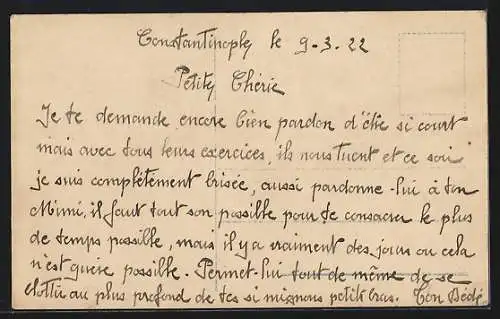 Constantinople le 9-3.22
Petite Chérie
Je te demande encore bien pardon d'être si court
mais avec tous leurs exercices, ils nous tuent et ce soir
je suis complètement brisée, aussi pardonne-lui à ton
Mimi, il faut tout son possible pour te consacrer le plus
de temps possible, mais il y a vraiment des jours ou cela
n'est guère possible. Permet-lui tout de même de se
au plus profond de tes si mignons petits bras. Ton Bédé